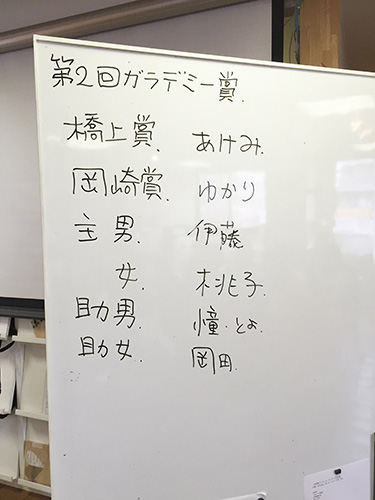 第2回ガラデミー賞.
橋上賞. あけみ.
岡崎賞. ゆかり
主男. 伊藤
女. 桃子.
助男. 憧・とよ.
助女. 岡田.